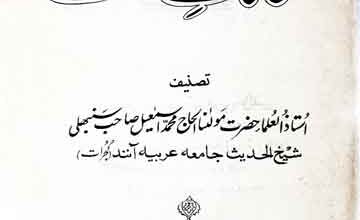 تصنیف
استاذ العلما حضرت مولٰنا الحاج محمد اسمٰعیل صاحب سنبھلی
شیخ الحدیث جامعہ عربیہ آنند (گجرات)